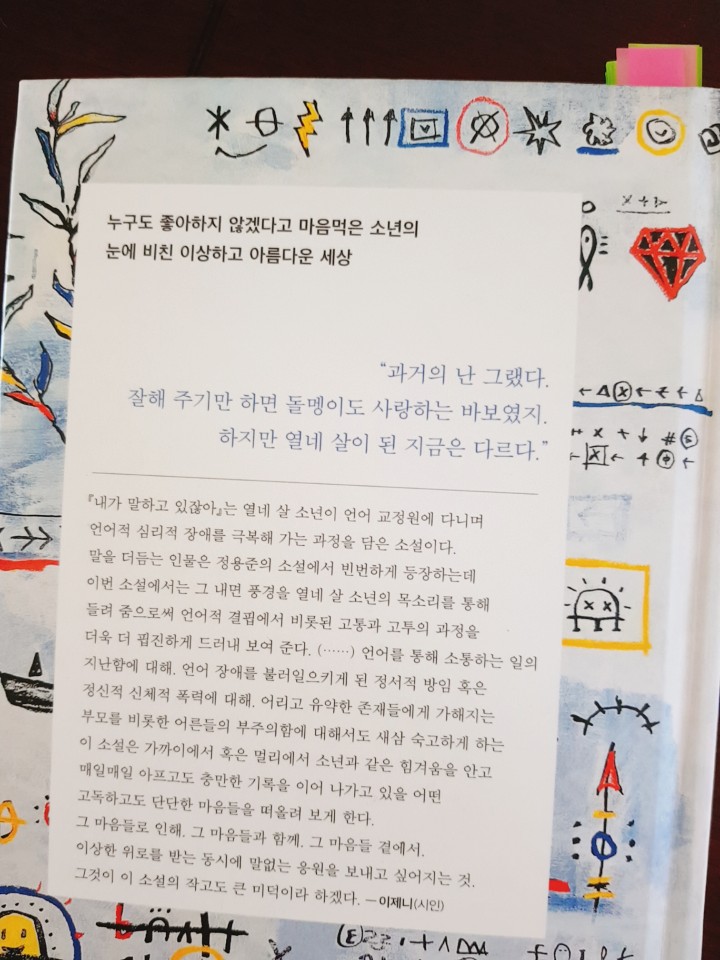 누구도 좋아하지 않겠다고 마음먹은 소년의
눈에 비친 이상하고 아름다운 세상
“과거의 난 그랬다.
잘해 주기만 하면 돌멩이도 사랑하는 바보였지.
하지만 열네 살이 된 지금은 다르다.”
『내가 말하고 있잖아』는 열네 살 소년이 언어 교정원에 다니며
언어적 심리적 장애를 극복해 가는 과정을 담은 소설이다.
말을 더듬는 인물은 정용준의 소설에서 빈번하게 등장하는데
이번 소설에서는 그 내면 풍경을 열네 살 소년의 목소리를 통해
들려 줌으로써 언어적 결핍에서 비롯된 고통과 고투의 과정을
더욱 더 핍진하게 드러내 보여 준다. (……) 언어를 통해 소통하는 일의
지난함에 대해. 언어 장애를 불러일으키게 된 정서적 방임 혹은
정신적 신체적 폭력에 대해. 어리고 유약한 존재들에게 가해지는
부모를 비롯한 어른들의 부주의함에 대해서도 새삼 숙고하게 하는
이 소설은 가까이에서 혹은 멀리에서 소년과 같은 힘겨움을 안고
매일매일 아프고도 충만한 기록을 이어 나가고 있을 어떤
고독하고도 단단한 마음들을 떠올려 보게 한다.
그 마음들로 인해. 그 마음들과 함께. 그 마음들 곁에서.
이상한 위로를 받는 동시에 말없는 응원을 보내고 싶어지는 것.
그것이 이 소설의 작고도 큰 미덕이라 하겠다. —이제니(시인)